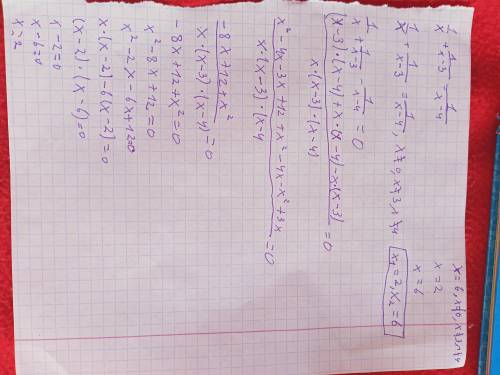 1/x + 1/x-3 = 1/x-4
1/x + 1/x-3 = 1/x-4, x≠0, x≠3, x≠4
1/x + 1/x-3 - 1/x-4 = 0
(x-3)·(x-4)+x·(x-4)-x·(x-3) / x·(x-3)·(x-4) = 0
x²-4x-3x+12+x²-4x-x²+3x / x·(x-3)·(x-4 = 0
-8x+12+x² / x·(x-3)·(x-4) = 0
-8x+12+x²=0
x²-8x+12=0
x²-2x-6x+12=0
x·(x-2)-6(x-2)=0
(x-2)·(x-6)=0
x-2=0
x-6=0
x=2
x=6, x≠0, x≠3, x≠4
x=2
x=6
x₁=2, x₂=6